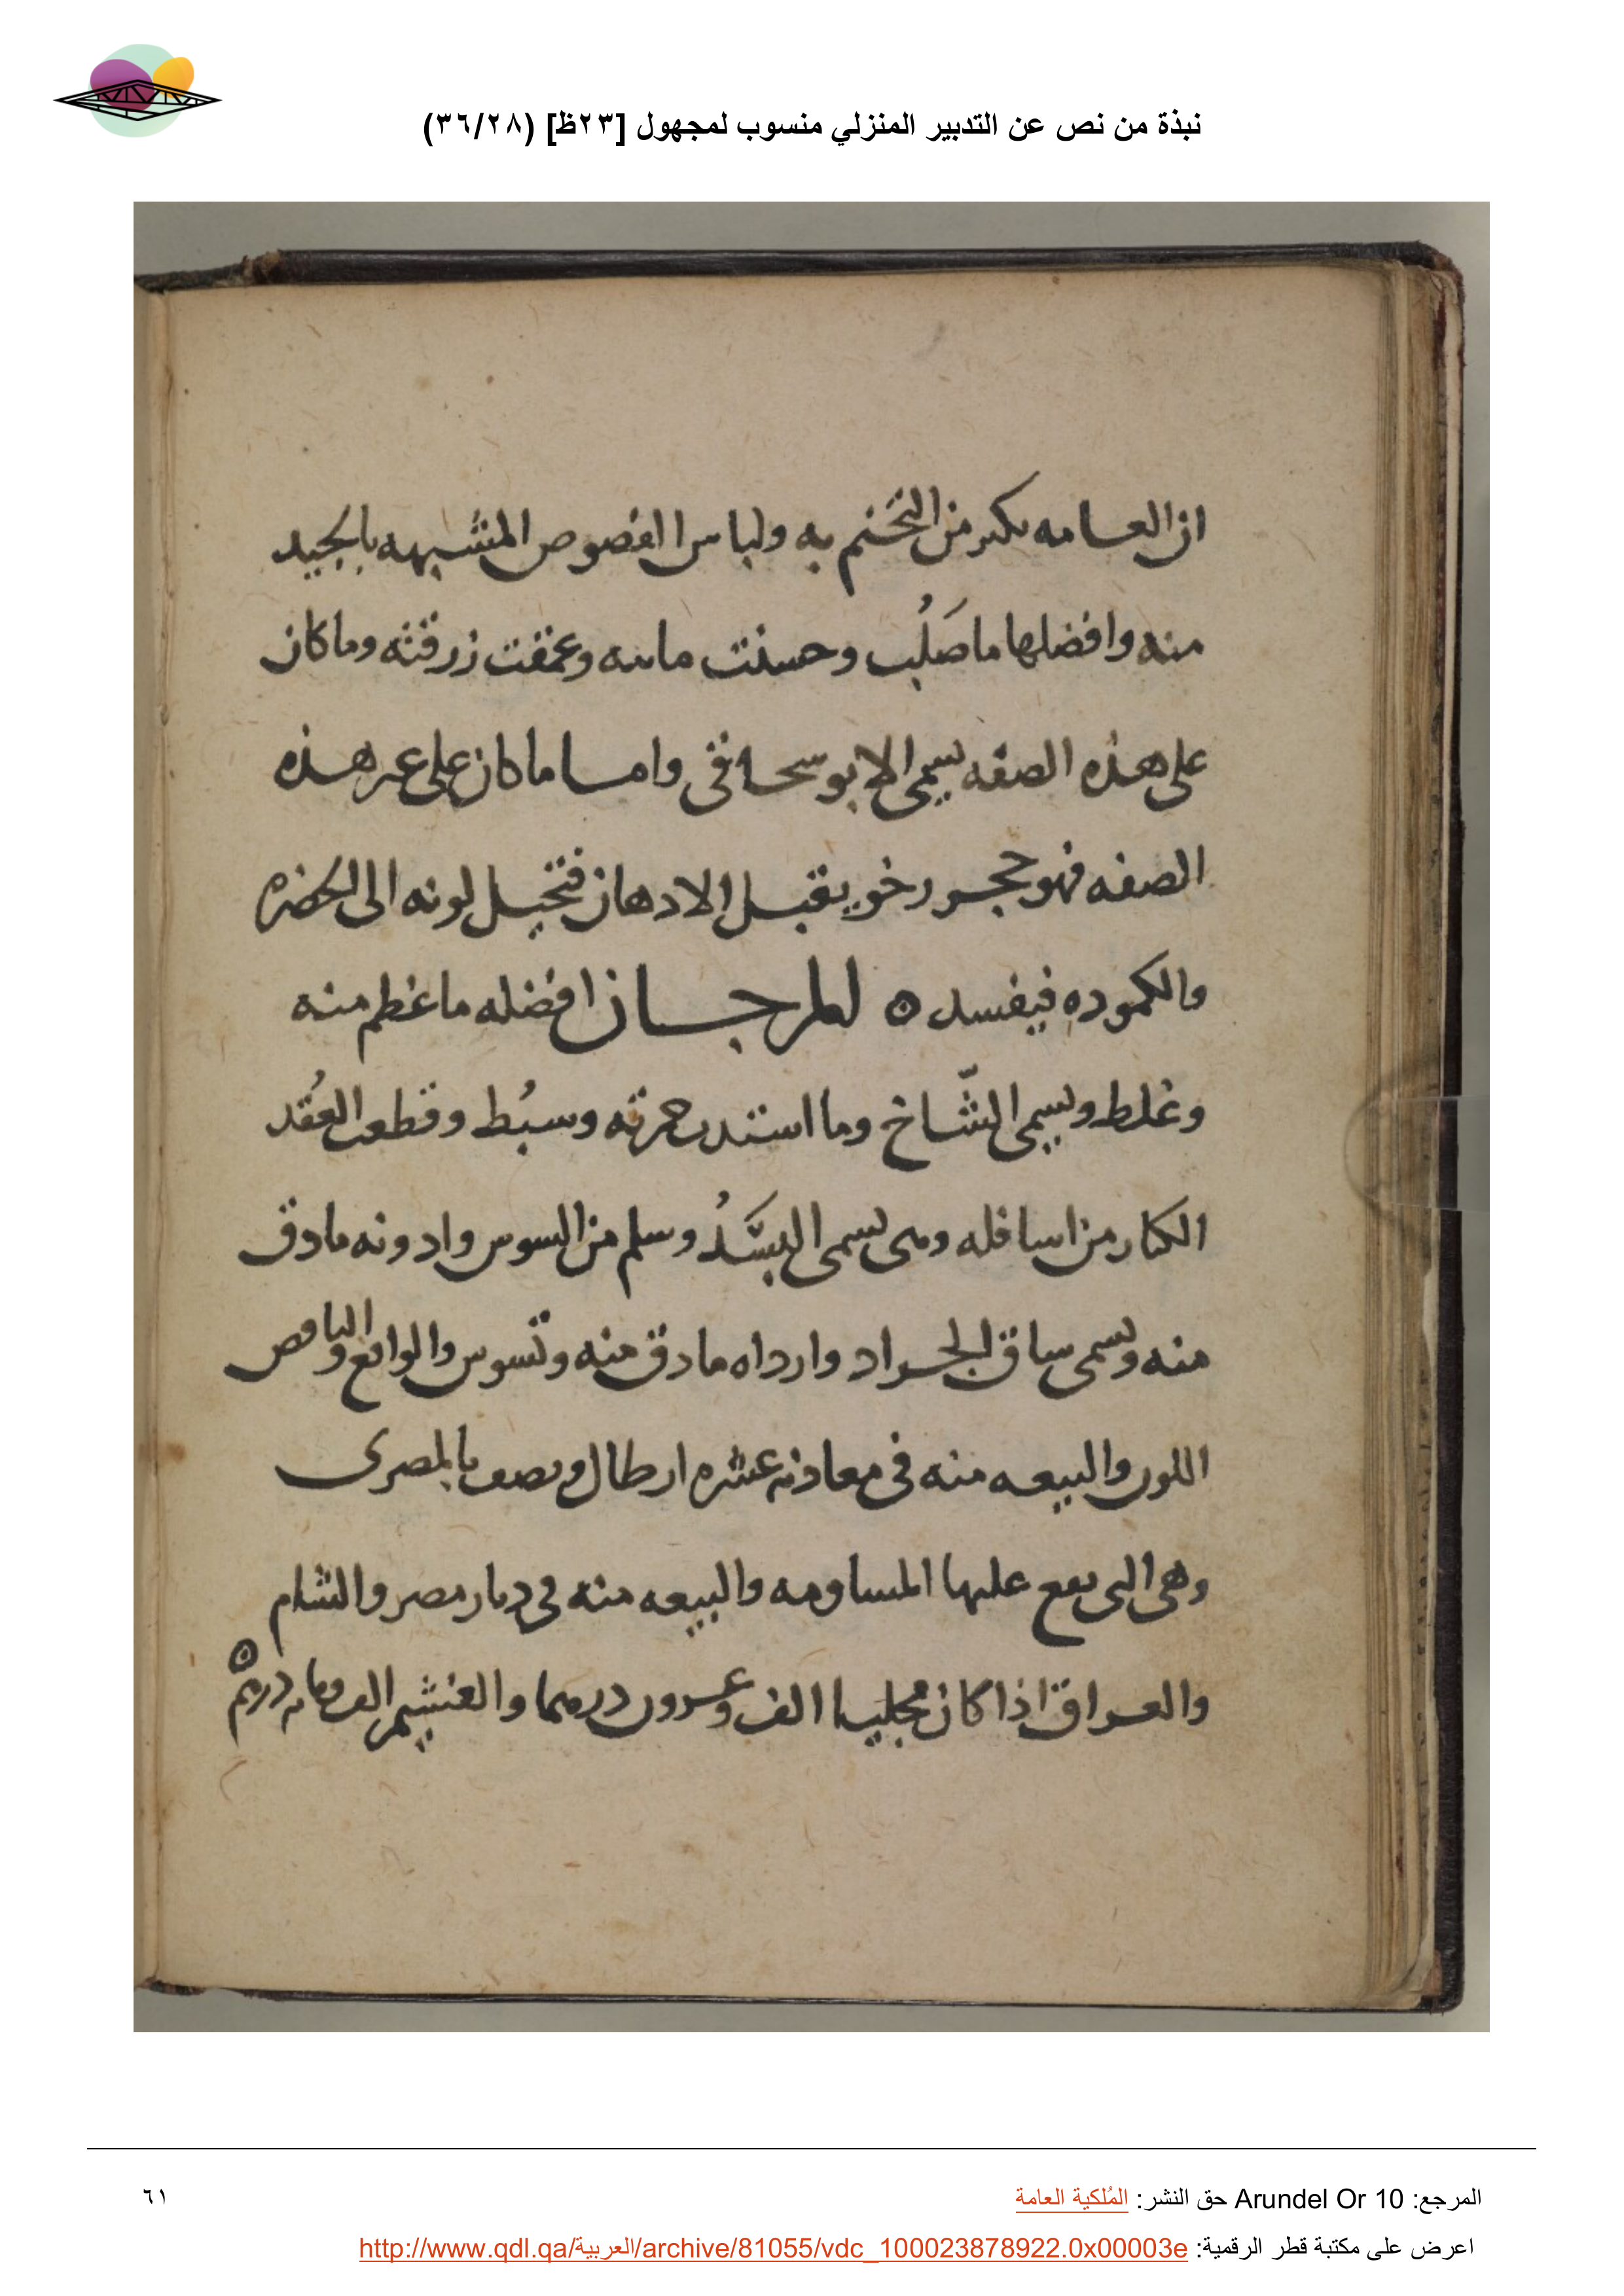 نبذة من نص عن التدبير المنزلي منسوب لمجهول [٢٣ظ] (٣٦/٢٨)
ان العامه تكثر من التختم به ولباس الفصوص المشبهه بالجيد
منه وافضلها ما صَلُب وحسنت مائيه وعمقت زرقته وما كان
على هذه الصفه يسمى الابوسحاقى واما ما كان على غير هذه
الصفه فهو حجر رخو يقبل الادهان فتحيل لونه الى الخضره
والكموده فيفسد ٥ المرجان افضله ما عظم منه
وغلط ويسمى الشّاخ وما استدت حمرته وسبُط وقطعت العُقد
الكبار من اسافله ومى يسمى البسَّدُ وسلم من السوس وادونه ما دق
منه ويسمى ساق الجراد وارداه ما دق منه وتسوس والواقع والناقص
اللون والبيعه منه فى معادنه عشره ارطال ونصف بالمصرى
وهى التى يقع عليها المساومه والبيعه منه فى ديار مصر والشام
والعراق اذا كان مجليا الف وعشرون درهما والغشيم الف ومايه درهم ٥
المرجع: Arundel Or 10 حق النشر: المُلكية العامة
٦١
اعرض على مكتبة قطر الرقمية: http://www.qdl.qa/العربية/archive/81055/vdc_100023878922.0x00003e